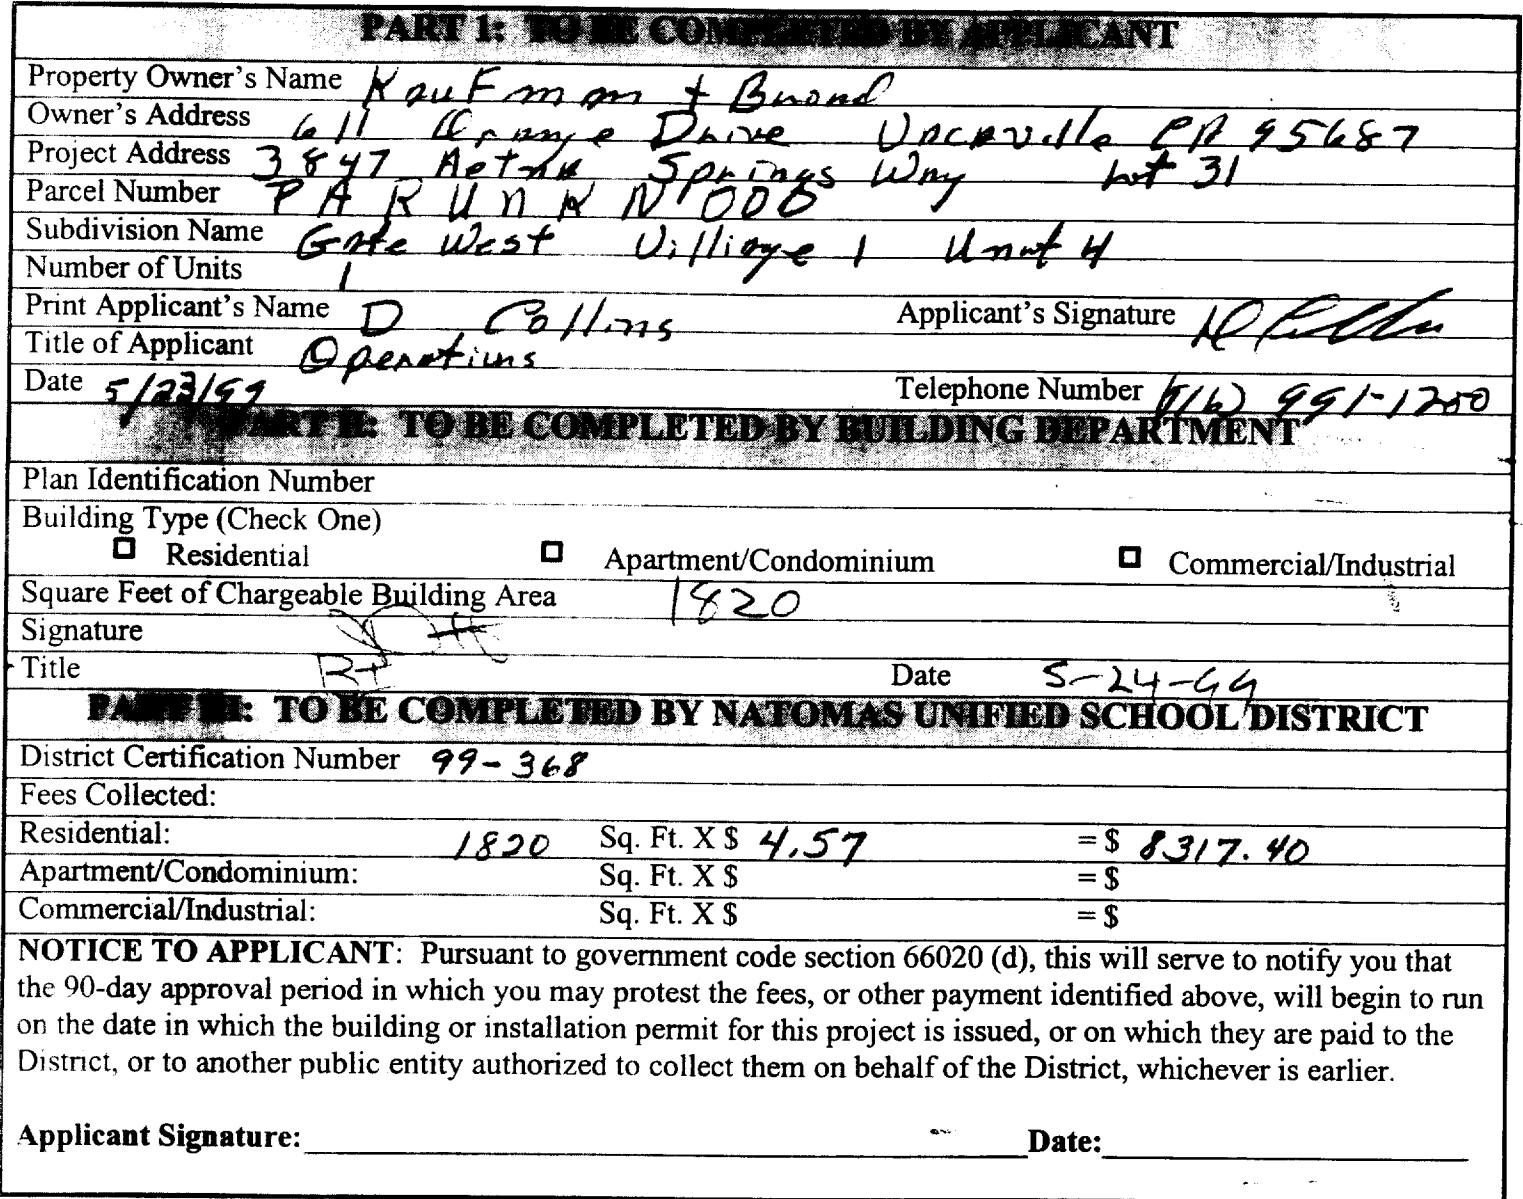 PART 1: TO BE COMPLETED BY APPLICANT
Property Owner's Name Kaufman + Broad
Owner's Address 611 Orange Drive Vacaville CA 95687
Project Address 3847 Aetna Springs Way Lot 31
Parcel Number PARUNKN000
Subdivision Name Gate West Villiage 1 Unit 4
Number of Units 1
Print Applicant's Name D Collins Applicant's Signature
Title of Applicant Operations
Date 5/23/99 Telephone Number (916) 991-1200
PART II: TO BE COMPLETED BY BUILDING DEPARTMENT
Plan Identification Number
Building Type (Check One)
Residential Apartment/Condominium Commercial/Industrial
Square Feet of Chargeable Building Area 1820
Signature
Title Date 5-24-99
PART III: TO BE COMPLETED BY NATOMAS UNIFIED SCHOOL DISTRICT
District Certification Number 99-368
Fees Collected:
Residential: 1820 Sq. Ft. X $ 4.57 = $ 8317.40
Apartment/Condominium: Sq. Ft. X $ = $
Commercial/Industrial: Sq. Ft. X $ = $
NOTICE TO APPLICANT: Pursuant to government code section 66020 (d), this will serve to notify you that
the 90-day approval period in which you may protest the fees, or other payment identified above, will begin to run
on the date in which the building or installation permit for this project is issued, or on which they are paid to the
District, or to another public entity authorized to collect them on behalf of the District, whichever is earlier.
Applicant Signature: Date: